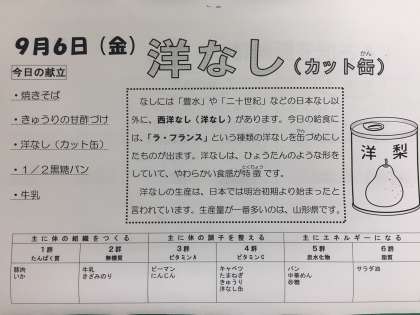 9月6日（金）
洋なし（カット缶）
かん
今日の献立
・焼きそば
・きゅうりの甘酢づけ
・洋なし（カット缶）
・１／２黒糖パン
・牛乳
なしには「豊水」や「二十世紀」などの日本なし以
外に、西洋なし（洋なし）があります。今日の給食に
は、「ラ・フランス」という種類の洋なしを缶づめにし
たものが出ます。洋なしは、ひょうたんのような形を
していて、やわらかい食感が特徴です。
洋なしの生産は、日本では明治初期より始まったと
言われています。生産量が一番多いのは、山形県です。
洋梨
主に体の組織をつくる
主に体の調子を整える
主にエネルギーになる
1群
たんぱく質
2群
無機質
3群
ビタミンA
4群
ビタミンC
5群
炭水化物
6群
脂質
豚肉
いか
牛乳
きざみのり
ピーマン
にんじん
キャベツ
たまねぎ
きゅうり
洋なし缶
パン
中華めん
砂糖
サラダ油